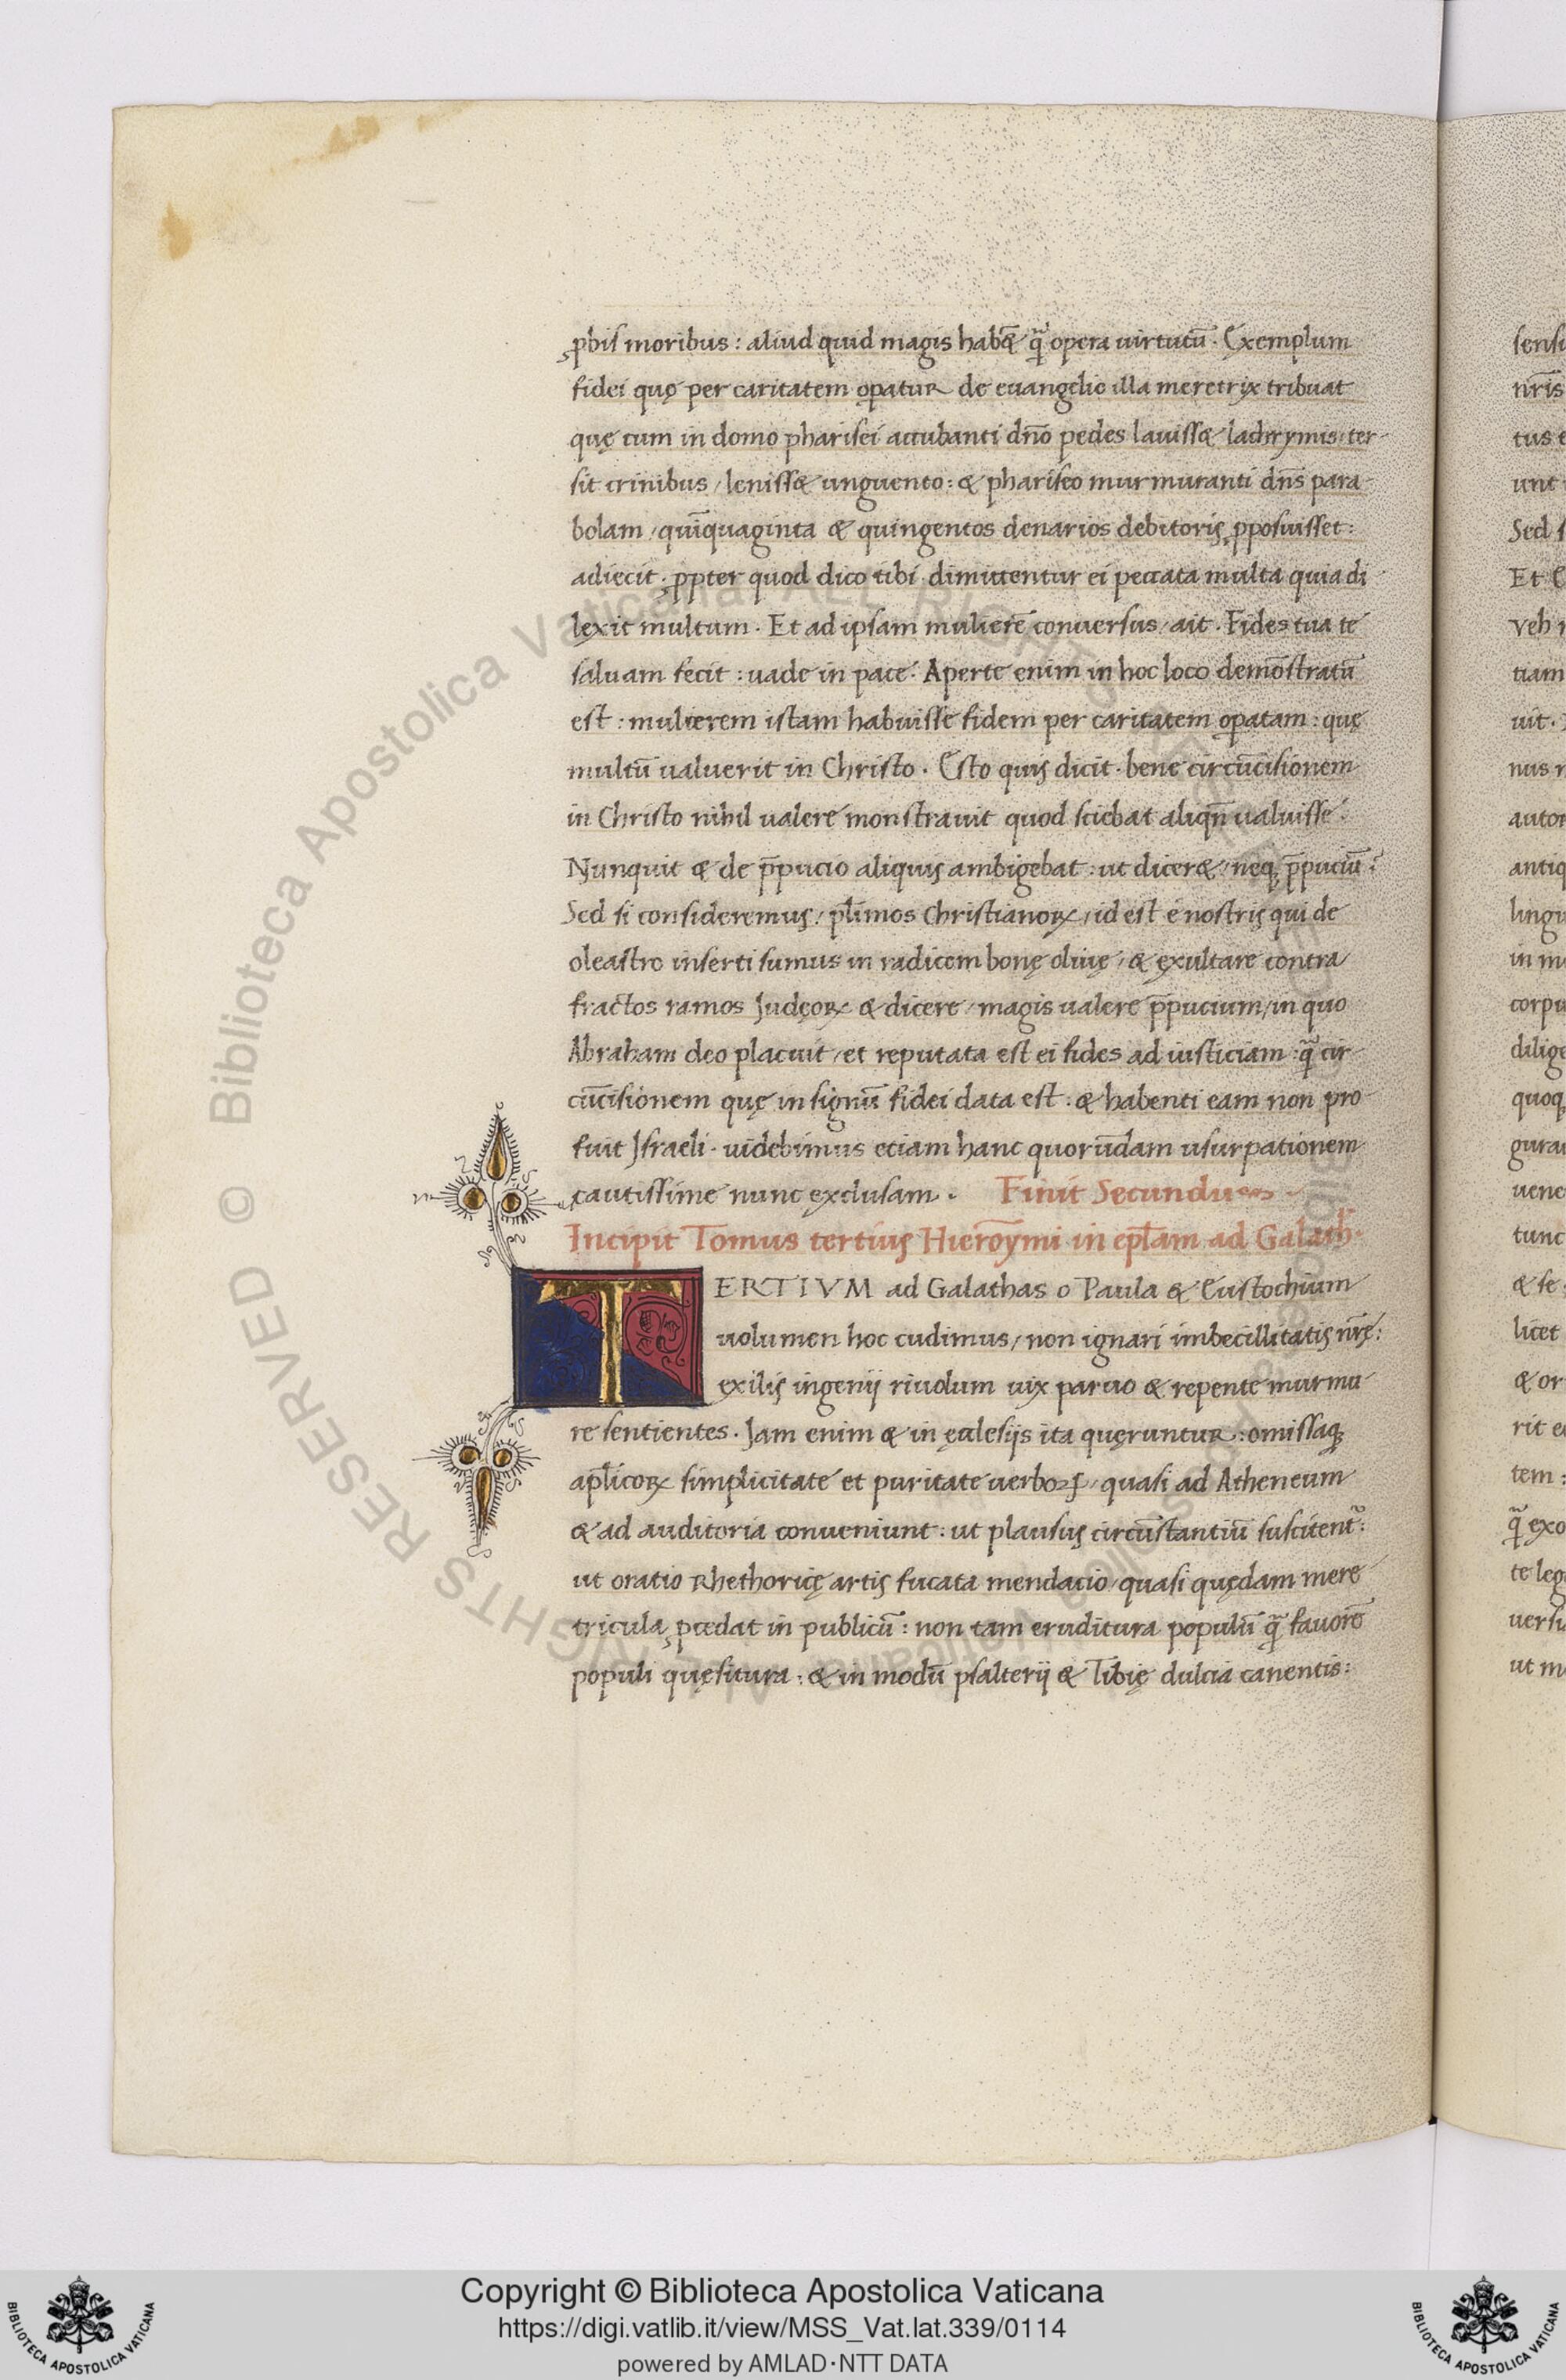 ꝓbis moribus : aliud quid magis habēt q̄ opera uirtutū . Exemplum
fidei quę per caritatem oꝑatur de euangelio illa meretrix tribuat
quę cum in domo pharisei accubanti dn̄o pedes lauisset lachrymis / ter-
sit crinibus / lenisset unguento : & phariseo murmuranti dn̄s para-
bolam / quīquaginta & quingentos denarios debitoris ꝓposuisset :
adiecit . ꝓpter quod dico tibi . dimittentur ei peccata multa quia di-
lexit multum . Et ad ipsam mulierē conuersus / ait . Fides tua te
saluam fecit : uade in pace . Aperte enim in hoc loco demōstratū
est : mulierem istam habuisse fidem per caritatem oꝑatam : quę
multū ualuerit in Christo . Esto quis dicit . bene circūcisionem
in Christo nihil ualere monstrauit quod sciebat aliqn̄ ualuisse .
Nunquit & de p̄pucio aliquis ambigebat : ut diceret / neqꝫ p̄puciū ?
Sed si consideremus / pl̄imos Christianoꝝ / id est e nostris qui de
oleastro inserti sumus in radicem bonę oliuę / & exultare contra
fractos ramos Judęoꝝ & dicere / magis ualere p̄pucium / in quo
Abraham deo placuit / et reputata est ei fides ad iusticiam : q̄ cir-
cūcisionem quę in signū fidei data est : & habenti eam non pro-
fuit Jsraeli . uidebimus etiam hanc quorūdam usurpationem
cautissime nunc exclusam . Finit Secundus .
Incipit Tomus tertius Hierōymi in epl̄am ad Galath̄ .
TERTIVM ad Galathas o Paula & Eustochium
uolumen hoc cudimus / non ignari imbecillitatis nr̄ę :
exilis ingenij riuolum uix paruo & repente murmu-
re sentientes . Jam enim & in ęcclesijs ita quęruntur : omissaqꝫ
apl̄icoꝝ simplicitate et puritate uerboꝝ / quasi ad Atheneum
& ad auditoria conueniunt : ut plausus circūstantiū suscitent᷑ :
ut oratio Rhethoricę artis fucata mendacio / quasi quędam mere-
tricula ꝓcedat in publicū : non tam eruditura populū q̄ fauorē
populi quęsitura : & in modū psalterij & Tibię dulcia canentis :
sensu
nr̄is
tus e
unt
Sed s
Et
Veh
tiam
uit .
nus
autor
antiq
lingu
in m
corpu
dilige
quoqꝫ
gurau
uene
tunc
& se
licet
& or
rit e
tem :
q̄ exo
te leg
uersu
ut m
© Biblioteca Apostolica Vaticana ALL RIGHTS RESERVED
Copyright © Biblioteca Apostolica Vaticana
https://digi.vatlib.it/view/MSS_Vat.lat.339/0114
powered by AMLAD·NTT DATA
BIBLIOTECA APOSTOLICA VATICANA
BIBLIOTECA APOSTOLICA VATICANA